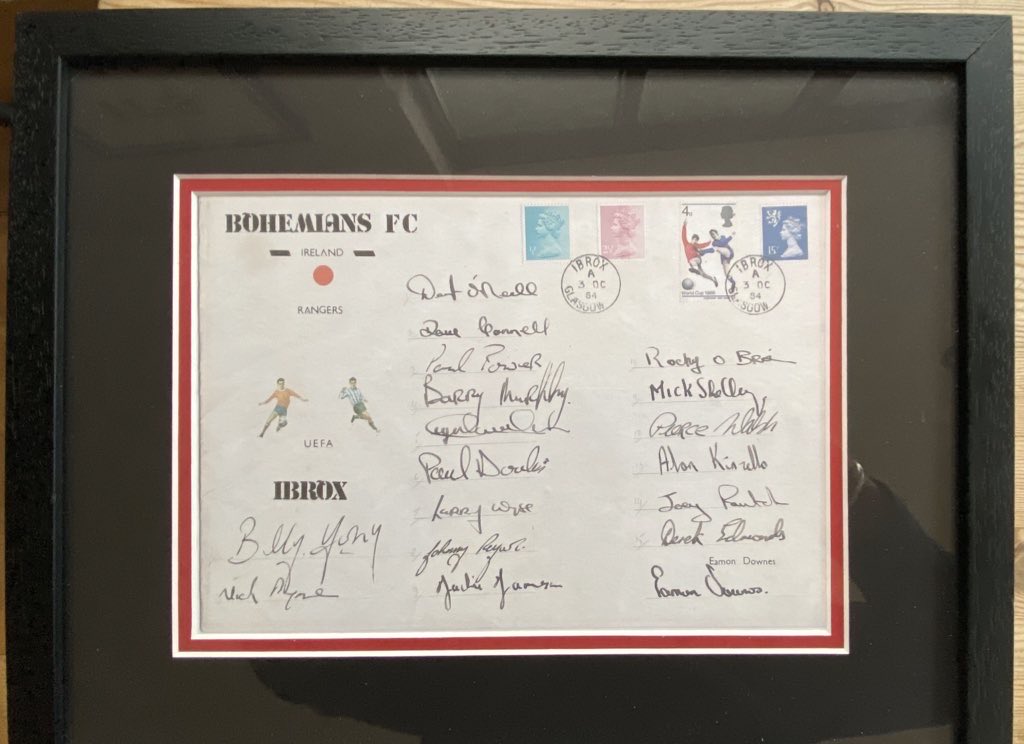 BOHEMIANS FC
IRELAND
RANGERS
UEFA
IBROX
4D
World Cup 1966
15P
IBROX
A
3 OC
84
GLASGOW
IBROX
A
3 OC
84
GLASGOW
Dermot O'Neill
Dave Connell
Paul
Barry Murphy.
Paul Doolin
Larry Wyse
Jackie Jameson
Billy Young
Mick Byrne
Rocky O Brien
Mick Shelley
Pearce Walsh
Alan Kinsella
Joey
Derek Edmonds
Eamon Downes
Eamon Downes.